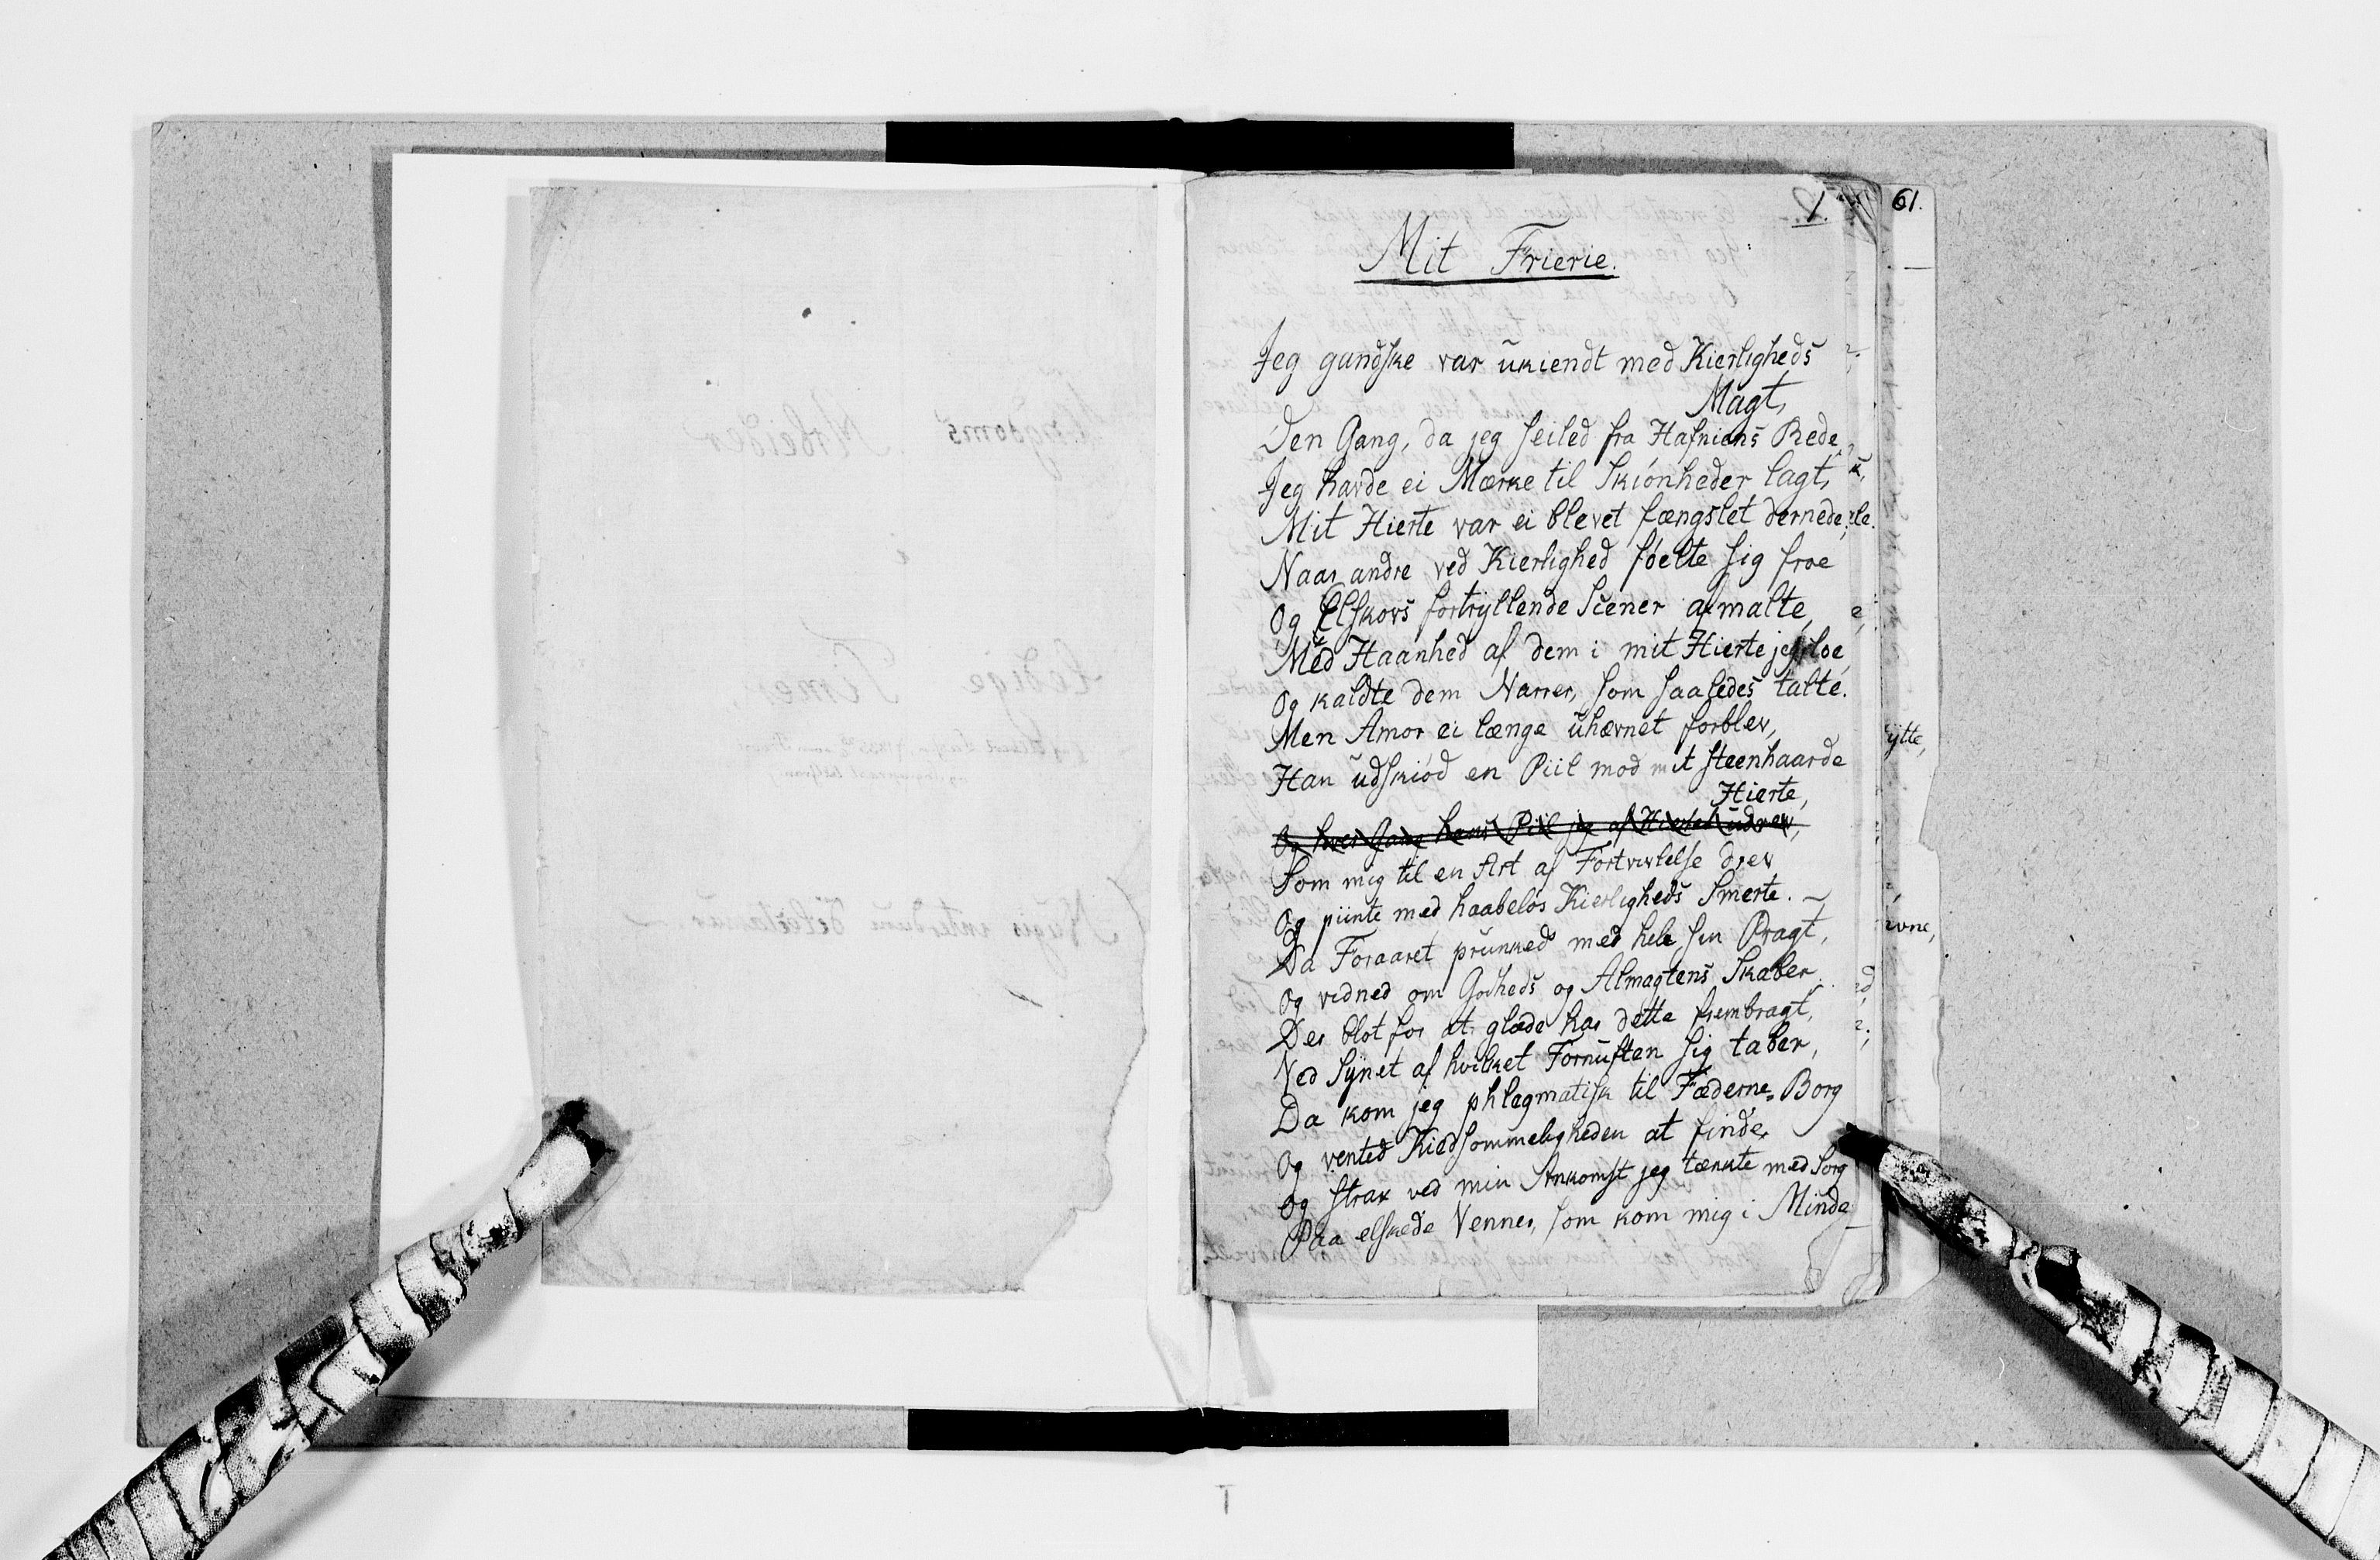 1.
61.
Mit Frierie.
Jeg gandske var ukiendt med Kierligheds
Magt,
Den Gang, da jeg seiled fra Hafniens Rede,
Jeg havde ei Mærke til Skiönheder lagt,
Mit Hierte var ei blevet fængslet dernede;
Naar andre ved Kierlighed föelte sig froe
Og Elskovs fortryllende Scener afmalte,
Med Haanhed af dem i mit Hierte jeg loe,
Og kaldte dem Narrer, som saaledes talte.
Men Amor ei længe uhævnet forblev,
Han udskiöd en Piil mod mit steenhaarde
Hierte,
Og hver Gang hans Piil jeg af Hiertet udrev,
Som mig til en Art af Fortvivlelse drev
Og piinte med haabelös Kierligheds Smerte. –
Da Foraaret prunked med hele sin Pragt,
Og vidned om Godheds og Almagtens Skaber,
Der blot for at glæde har dette frembragt,
Ved Synet af hvilket Fornuften sig taber,
Da kom jeg phlegmatisk til Fæderne-Borg
Og vented Kiedsommeligheden at finde,
Og strax ved min Ankomst jeg tænkte med Sorg
Paa elskede Venner, som kom mig i Minde